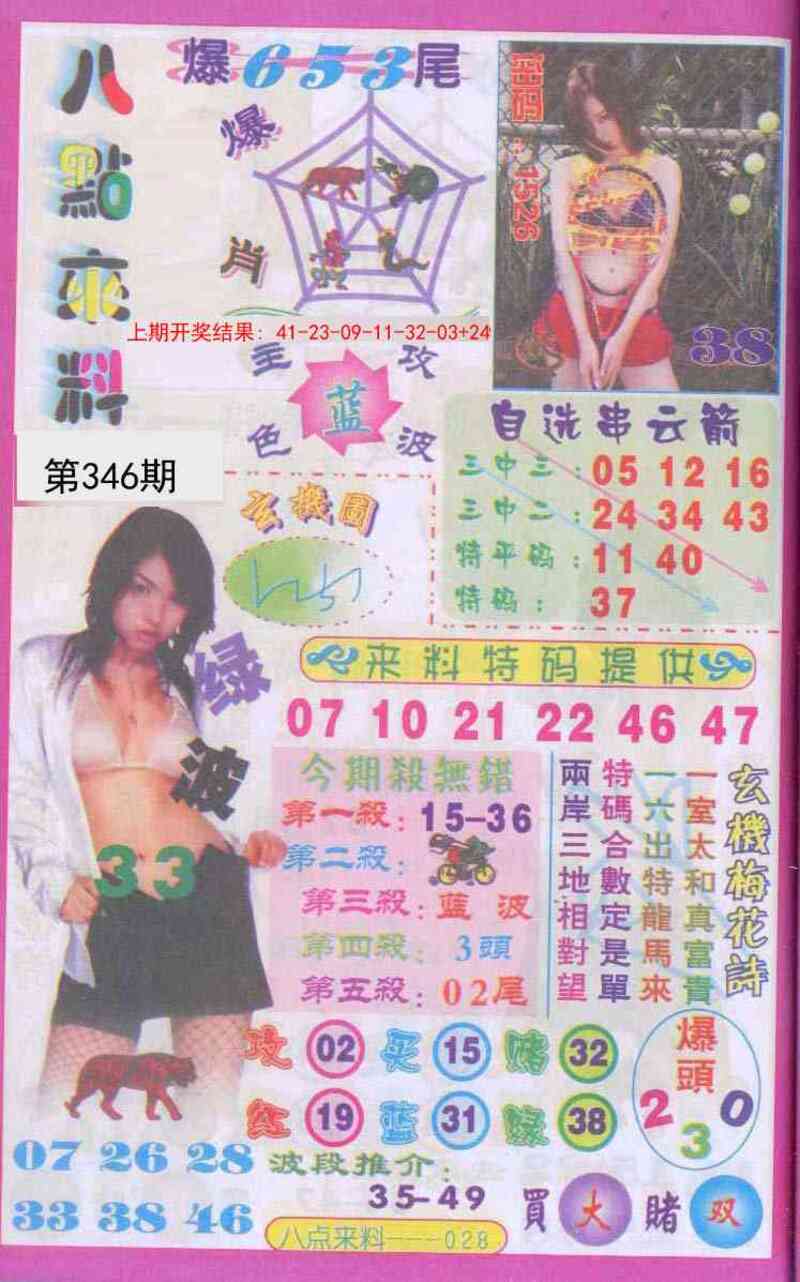 八點來料
爆653尾
爆肖
1526
38
上期开奖结果: 41-23-09-11-32-03+24
主攻
蓝
色波
第346期
自选串云箭
三中三: 05 12 16
三中二: 24 34 43
特平码: 11 40
特码: 37
玄機圖
来料特码提供
07 10 21 22 46 47
绿波
33
今期殺無錯
第一殺: 15-36
第二殺:
第三殺: 蓝波
第四殺: 3頭
第五殺: 02尾
玄機梅花詩
一室太和真富貴
一六出特龍馬來
特碼合數定是單
兩岸三地相對望
攻 02 买 15 赌 32
红 19 蓝 31 绿 38
爆頭
2 3 0
07 26 28
33 38 46
波段推介:
35-49
買大賭双
八点来料---028